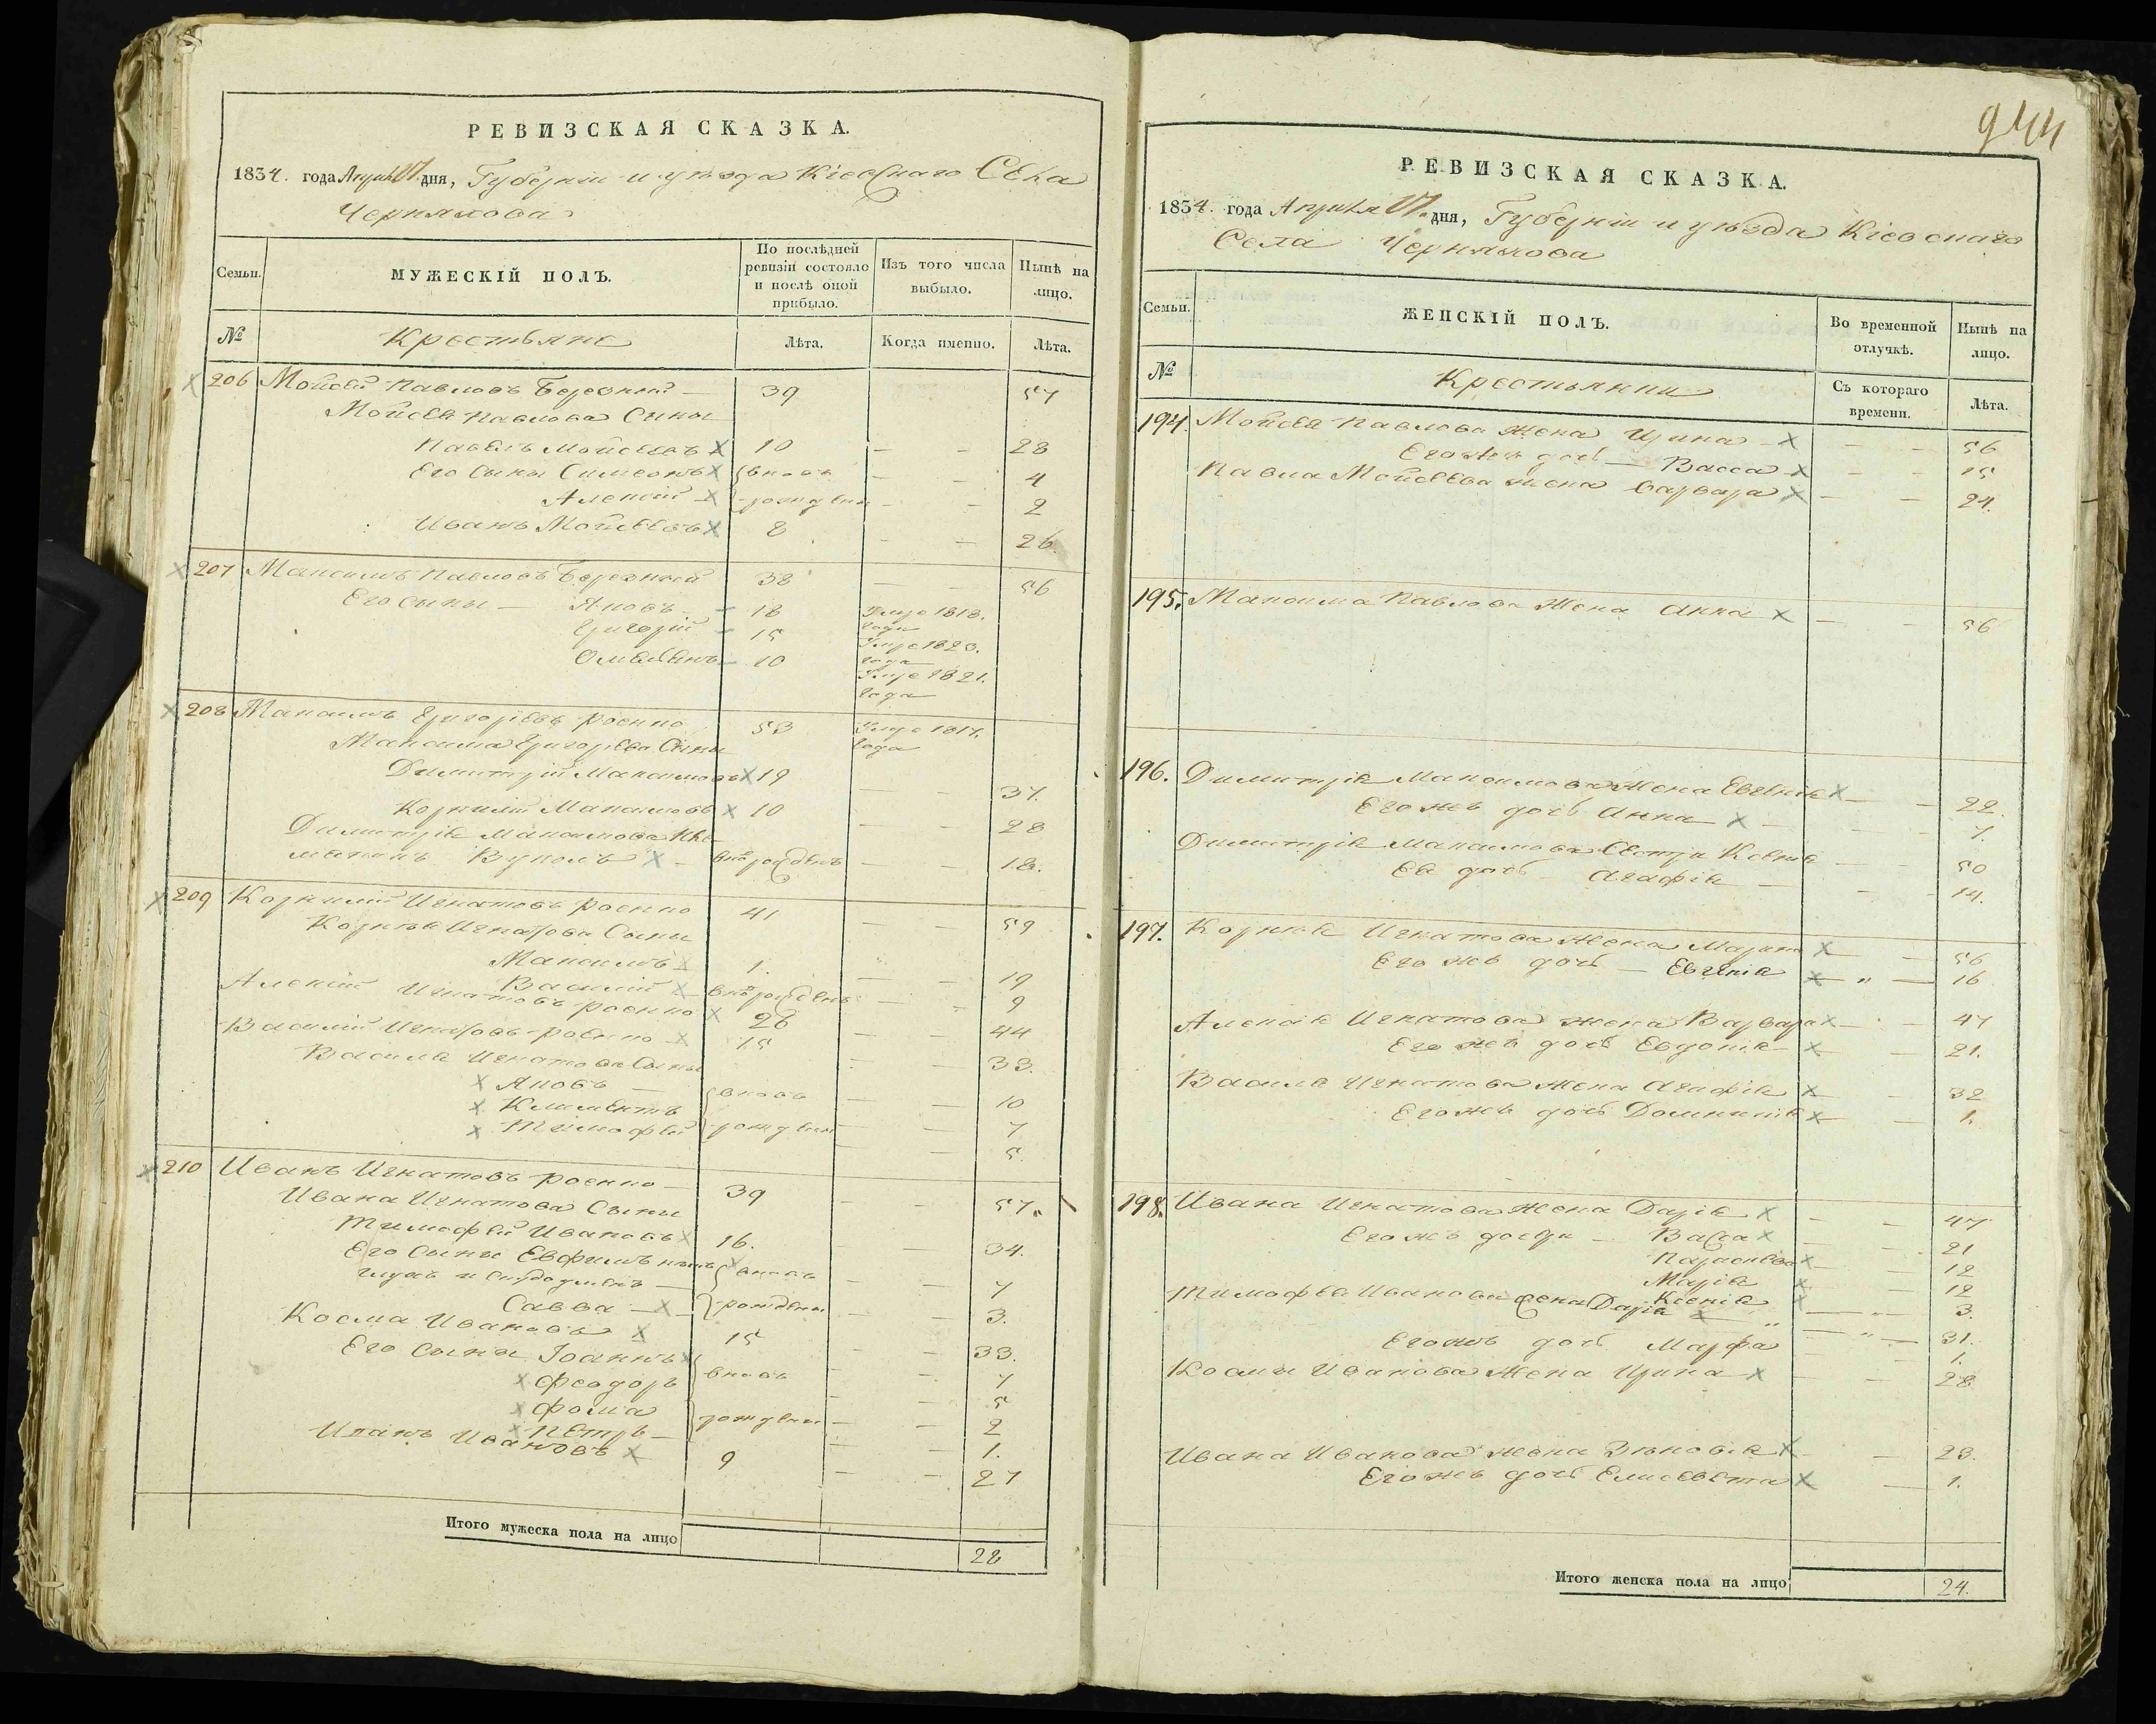 РЕВИЗСКАЯ СКАЗКА.
1834. года Апреля 17. дня, Губерніи и уѣзда Кіевскаго Села
Черняхова
Семьи.
МУЖЕСКІЙ ПОЛЪ.
По послѣдней ревизіи состояло и послѣ оной прибыло.
Изъ того числа выбыло.
Нынѣ на лицо.
№
Крестьяне
Лѣта.
Когда именно.
Лѣта.
206 Мойсей Павловъ Бережный — 39 57
Мойсея Павлова Сыны
Павелъ Мойсеевъ 10 — — 28
Его Сыны Симеонъ вновь — — 4
Алексій рождены — — 2
Иванъ Мойсеевъ 8 — — 26.
207 Максимъ Павловъ Бережный 38 — 56
Его Сыны — Яковъ — 18 Умре 1818. года
Григорій — 15 Умре 1823. года
Омелянъ — 10 Умре 1821. года
208 Максимъ Григорьевъ Роенко 53 Умре 1817. года
Максима Григорьева Сыны
Димитрій Максимовъ 19 — — 37.
Корнилій Максимовъ 10 — — 28
Димитрія Максимова Пле-
мянникъ Вуколъ — внорожденъ — — 18.
209 Корнилій Игнатовъ Роенко 41 — — 59
Корнея Игнатова Сыны
Максимъ 1. — — 19
Василій внорожденъ — — 9
Алексій Игнатовъ Роенко 26 — — 44
Василій Игнатовъ Роенко 15 — — 33.
Василя Игнатова Сыны
Яковъ — вновь — — 10
Климентъ — — 7
Тимофей рождены — — 5.
210 Иванъ Игнатовъ Роенко — 39 — — 57.
Ивана Игнатова Сыны
Тимофей Ивановъ 16. — 34.
Его Сыны Евфимъ вновь — — 7
глухъ и скудоуменъ —
Савва — рождены — 3.
Косма Ивановъ 15 — — 33.
Его Сыны Іоаннъ вновь — — 7
Феодоръ — — 5
Фома рождены — — 2
Петръ — — — 1.
Иванъ Ивановъ 9 — — 27
Итого мужеска пола на лицо 28
944
РЕВИЗСКАЯ СКАЗКА.
1834. года Апреля 17. дня, Губерніи и уѣзда Кіевскаго
Села Черняхова
Семьи.
ЖЕНСКІЙ ПОЛЪ.
Во временной отлучкѣ.
Нынѣ на лицо.
№
Крестьянки
Съ котораго времени.
Лѣта.
194. Мойсея Павлова Жена Ирина — — 56
Его жъ дочь — Васса — — 15
Павла Мойсеева жена Варвара — — 24.
195. Максима Павлова Жена Анна — — 56
196. Димитрія Максимова Жена Евгенія — — 22.
Его жъ дочь Анна — — 7.
Димитрія Максимова Сестра Ксенія — 50
Ея дочь Агафія — — — 14.
197. Корнея Игнатова Жена Марина — 56
Его жъ дочь — Евгенія — " — 16
Алексія Игнатова жена Варвара — — 47
Его жъ дочь Евдокія — — 21.
Василя Игнатова Жена Агафія — — 32
Его жъ дочь Домникія — — 1.
198. Ивана Игнатова Жена Дарія — — 47
Его жъ дочери — Васса — — 21
Параскева — — 12
Марія — — 12
Ксенія — — 3.
Тимофея Иванова жена Дарія — " — 31.
Его жъ дочь Марфа — — 1.
Космы Иванова Жена Ирина — — 28
Ивана Иванова жена Зѣновія — — 23.
Его жъ дочь Елисевета — 1.
Итого женска пола на лицо 24.